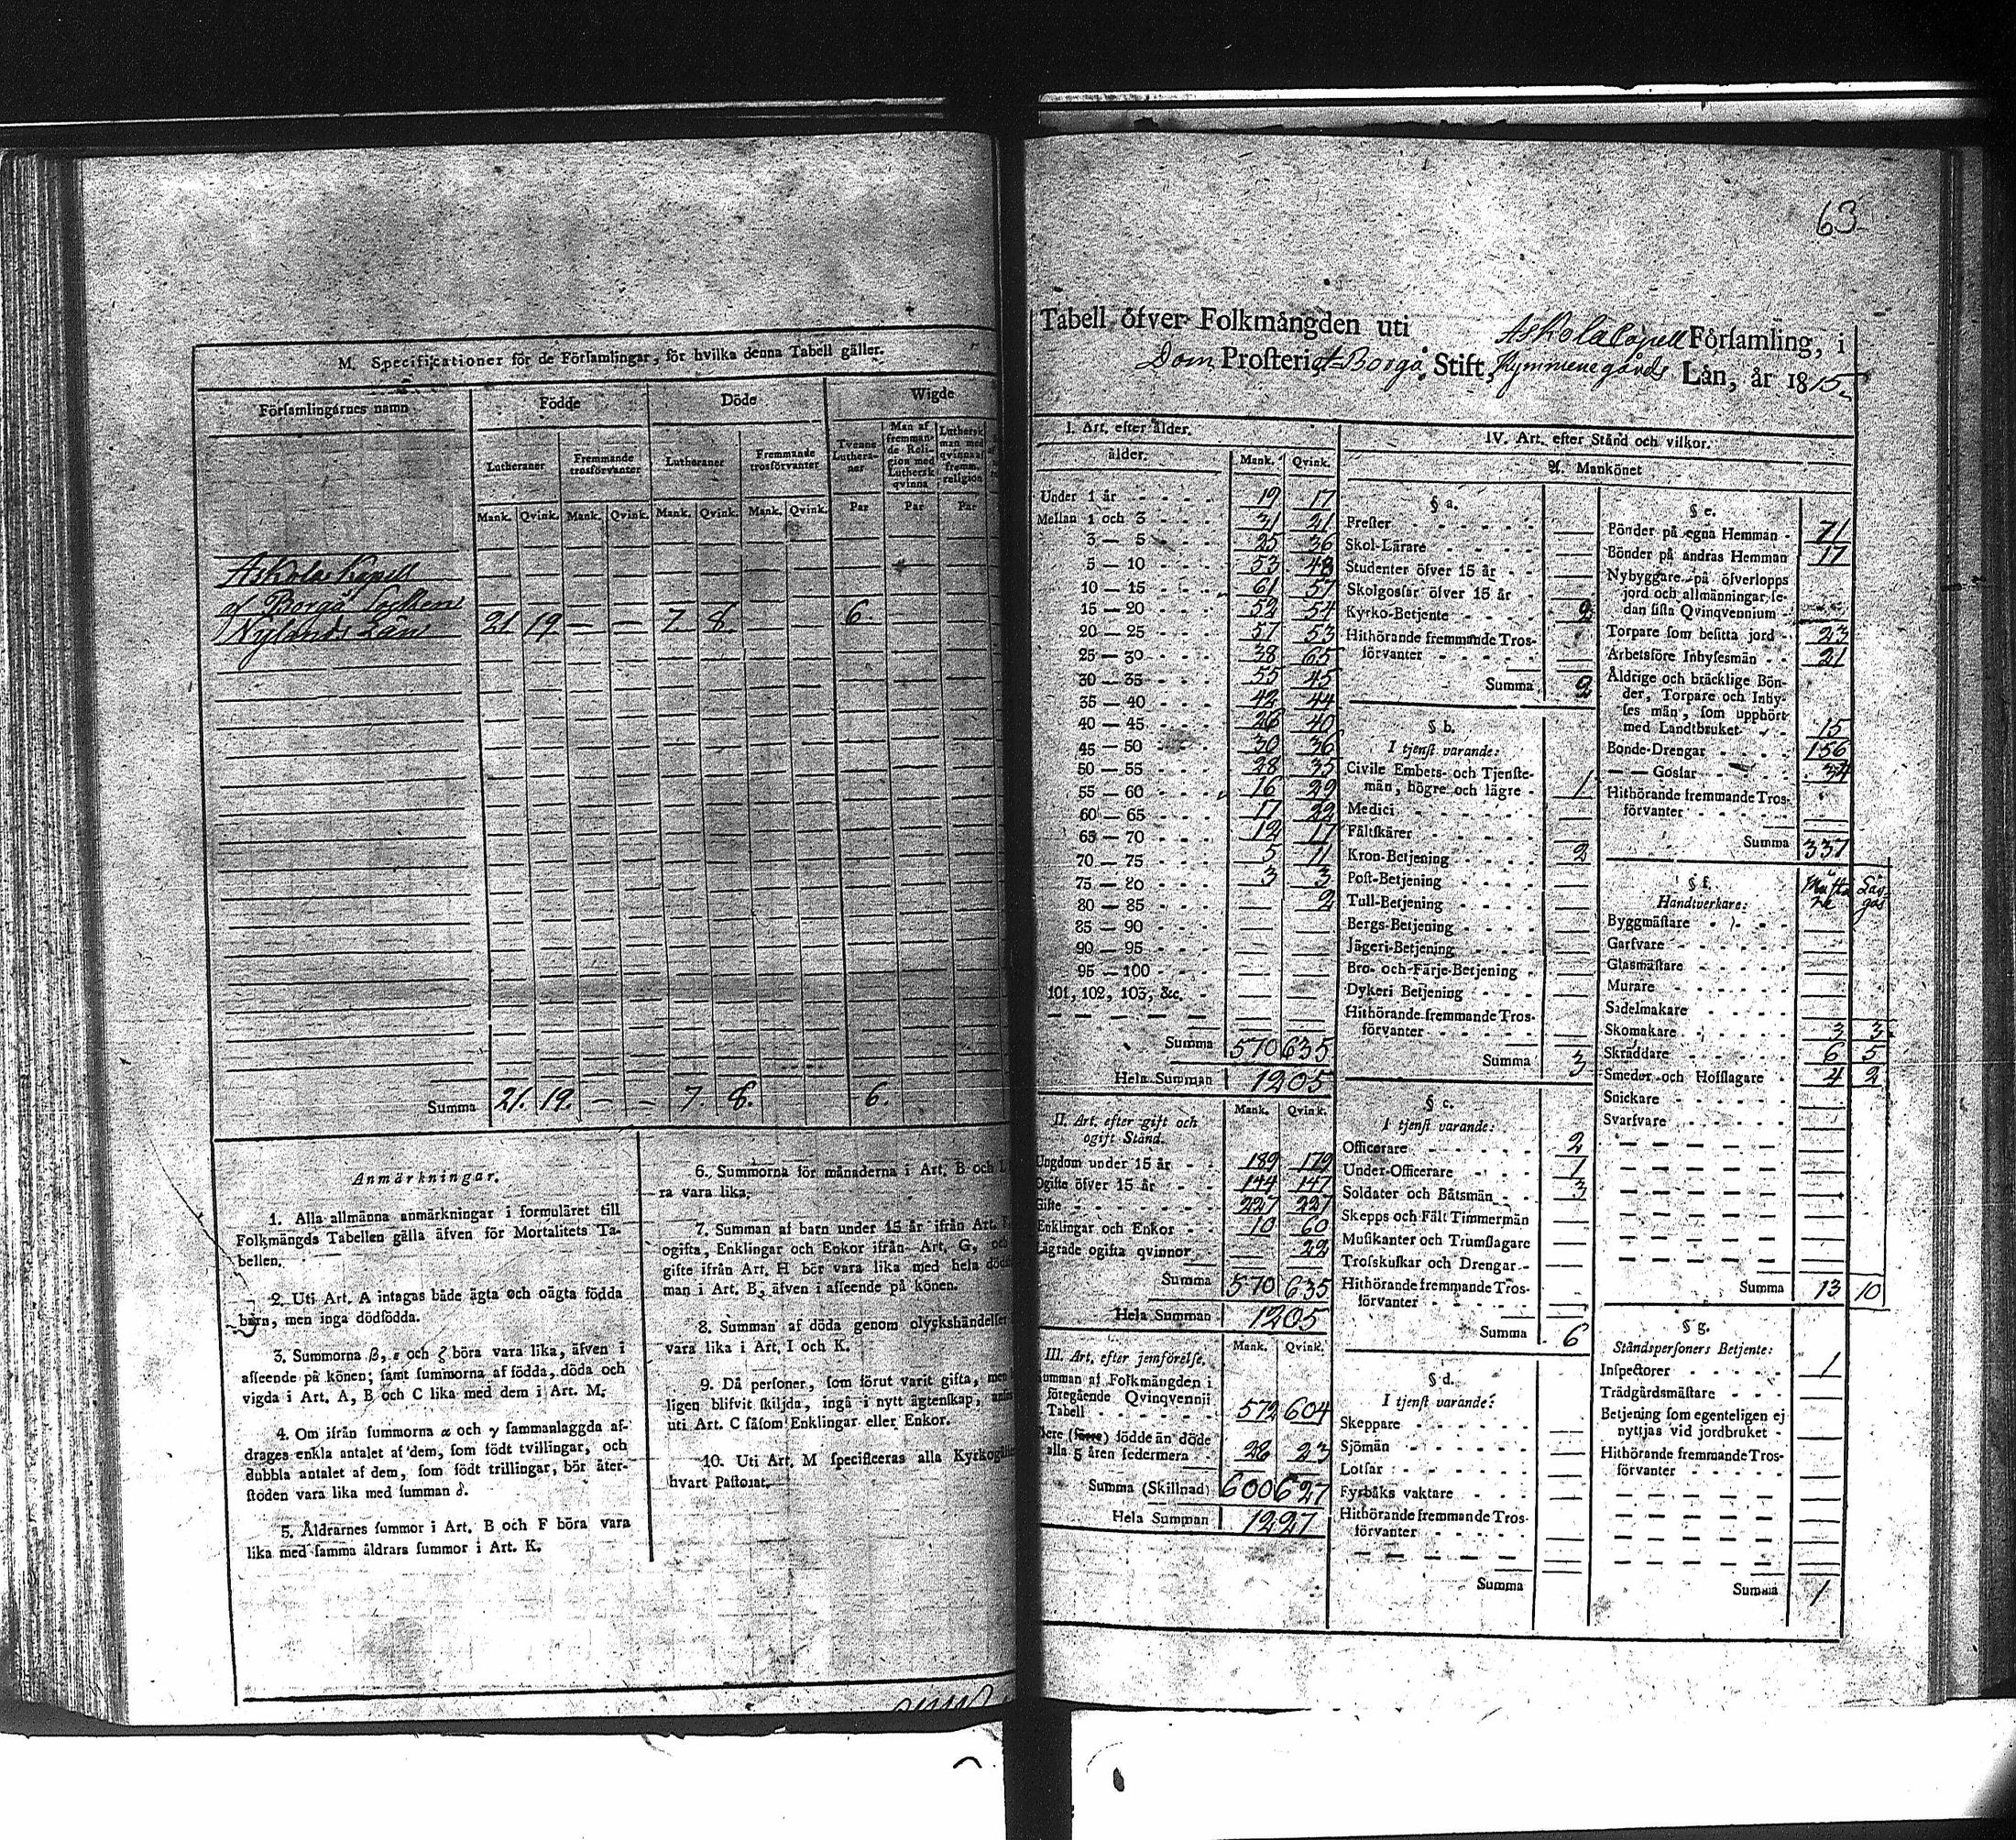 M. Specificationer för de Förſamlingar, för hvilka denna Tabell gäller.
Förſamlingarnes namn
Födde
Döde
Wigde
Lutheraner
Fremmande trosförvanter
Lutheraner
Fremmande trosförvanter
Tvenne Lutheraner
Man af fremmande Religion med Lutherſk qvinna
Lutherſk man med qvinna af fremm. religion
Mank. Qvink. Mank. Qvink. Mank. Qvink. Mank. Qvink. Par Par Par
Askola Kapell
af Borgå Socken
Nylands Län 21. 19. — — 7. 8. — — 6.
Summa 21. 19. — — 7. 8. 6.
Anmärkningar.
1. Alla allmänna anmärkningar i formuläret till
Folkmängds Tabellen gälla äfven för Mortalitets Ta-
bellen.
2. Uti Art. A intagas både ägta och oägta födda
barn, men inga dödfödda.
3. Summorna β, ε och ζ böra vara lika, äfven i
aſſeende på könen; ſamt ſummorna af födda, döda och
vigda i Art. A, B och C lika med dem i Art. M.
4. Om ifrån ſummorna α och γ ſammanlaggda af-
drages enkla antalet af dem, ſom födt tvillingar, och
dubbla antalet af dem, ſom födt trillingar, bör åter-
ſtoden vara lika med ſumman δ.
5. Åldrarnes ſummor i Art. B och F böra vara
lika med ſamma åldrars ſummor i Art. K.
6. Summorna för månaderna i Art. B och L
ra vara lika.
7. Summan af barn under 15 år ifrån Art.
ogifta, Enklingar och Enkor ifrån Art. G, och
gifte ifrån Art. H bör vara lika med hela död
man i Art. B, äfven i aſſeende på könen.
8. Summan af döda genom olyckshändelſer
vara lika i Art. I och K.
9. Då perſoner, ſom förut varit gifta, men
ligen blifvit ſkiljda, ingå i nytt ägtenſkap,
uti Art. C ſåſom Enklingar eller Enkor.
10. Uti Art. M ſpecificeras alla Kyrkogå
hvart Paſtorat.
63
Tabell öfver Folkmängden uti Askola Capell Förſamling, i
Dom Proſteri, Borgå Stift, Kymmenegårds Län, år 1815
I. Art. efter ålder.
ålder. Mank. Qvink.
Under 1 år 19 17
Mellan 1 och 3 31 21
3 — 5 25 36
5 — 10 53 48
10 — 15 61 57
15 — 20 52 54
20 — 25 57 53
25 — 30 38 65
30 — 35 55 45
35 — 40 42 44
40 — 45 26 40
45 — 50 30 36
50 — 55 28 35
55 — 60 16 29
60 — 65 17 22
65 — 70 12 17
70 — 75 5 11
75 — 80 3 3
80 — 85 — 2
85 — 90 — —
90 — 95 — —
95 — 100 — —
101, 102, 103, &c. — —
Summa 570 635
Hela Summan 1205
II. Art. efter gift och
ogift Stånd.
Mank. Qvink.
Ungdom under 15 år 189 179
Ogifte öfver 15 år 144 147
Gifte 227 227
Enklingar och Enkor 10 60
Lägrade ogifta qvinnor — 22
Summa 570 635
Hela Summan 1205
III. Art. efter jemförelſe. Mank. Qvink.
Summan af Folkmängden i
föregående Qvinqvennii
Tabell 572 604
födde än döde
alla 5 åren ſedermera 28 23
Summa (Skillnad) 600 627
Hela Summan 1227
IV. Art. efter Stånd och vilkor.
A. Mankönet
§ a.
Preſter —
Skol-Lärare —
Studenter öfver 15 år —
Skolgosſar öfver 15 år —
Kyrko-Betjente 2
Hithörande fremmande Tros-
förvanter —
Summa 2
§ b.
I tjenſt varande:
Civile Embets- och Tjenſte-
män, högre och lägre 1
Medici —
Fältſkärer —
Kron-Betjening 2
Poſt-Betjening —
Tull-Betjening —
Bergs-Betjening —
Jägeri-Betjening —
Bro- och Färje-Betjening —
Dykeri Betjening —
Hithörande fremmande Tros-
förvanter —
Summa 3
§ c.
I tjenſt varande:
Officerare 2
Under-Officerare 1
Soldater och Båtsmän 3
Skepps och Fält Timmermän —
Muſikanter och Trumſlagare —
Trosſkuſkar och Drengar —
Hithörande fremmande Tros-
förvanter —
Summa 6
§ d.
I tjenſt varande:
Skeppare —
Sjömän —
Lotſar —
Fyrbåks vaktare —
Hithörande fremmande Tros-
förvanter —
Summa
§ e.
Bönder på egna Hemman 71
Bönder på andras Hemman 17
Nybyggare på öfverlopps
jord och allmänningar ſe-
dan ſiſta Qvinqvennium —
Torpare ſom beſitta jord 23
Arbetsföre Inhyſesmän 21
Åldrige och bräcklige Bön-
der, Torpare och Inhy-
ſes män, ſom upphört
med Landtbruket 15
Bonde-Drengar 156
— — Gosſar 34
Hithörande fremmande Tros-
förvanter —
Summa 337
§ f.
Handtverkare:
Byggmäſtare —
Garfvare —
Glasmäſtare —
Murare —
Sadelmakare —
Skomakare 3 3
Skräddare 6 5
Smeder och Hofſlagare 4 2
Snickare —
Svarfvare —
Summa 13 10
§ g.
Ståndsperſoners Betjente:
Inſpectorer 1
Trädgårdsmäſtare —
Betjening ſom egenteligen ej
nyttjas vid jordbruket —
Hithörande fremmande Tros-
förvanter —
Summa 1